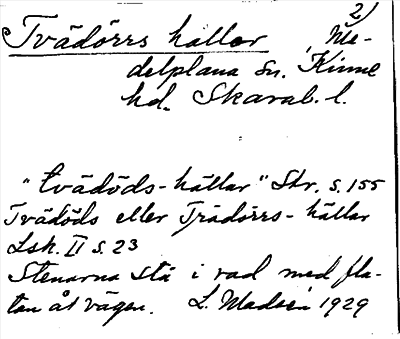 2)
Tvädörrs hällar, Me-
delplana sn. Kinne
hd. Skarab. l.
"tvädöds-hällar" Skr. s. 155
Tvädöds eller Trädörrs-hällar
Lsk. II s. 23
Stenarna stå i rad med fla-
tan åt vägen. L. Madsén 1929